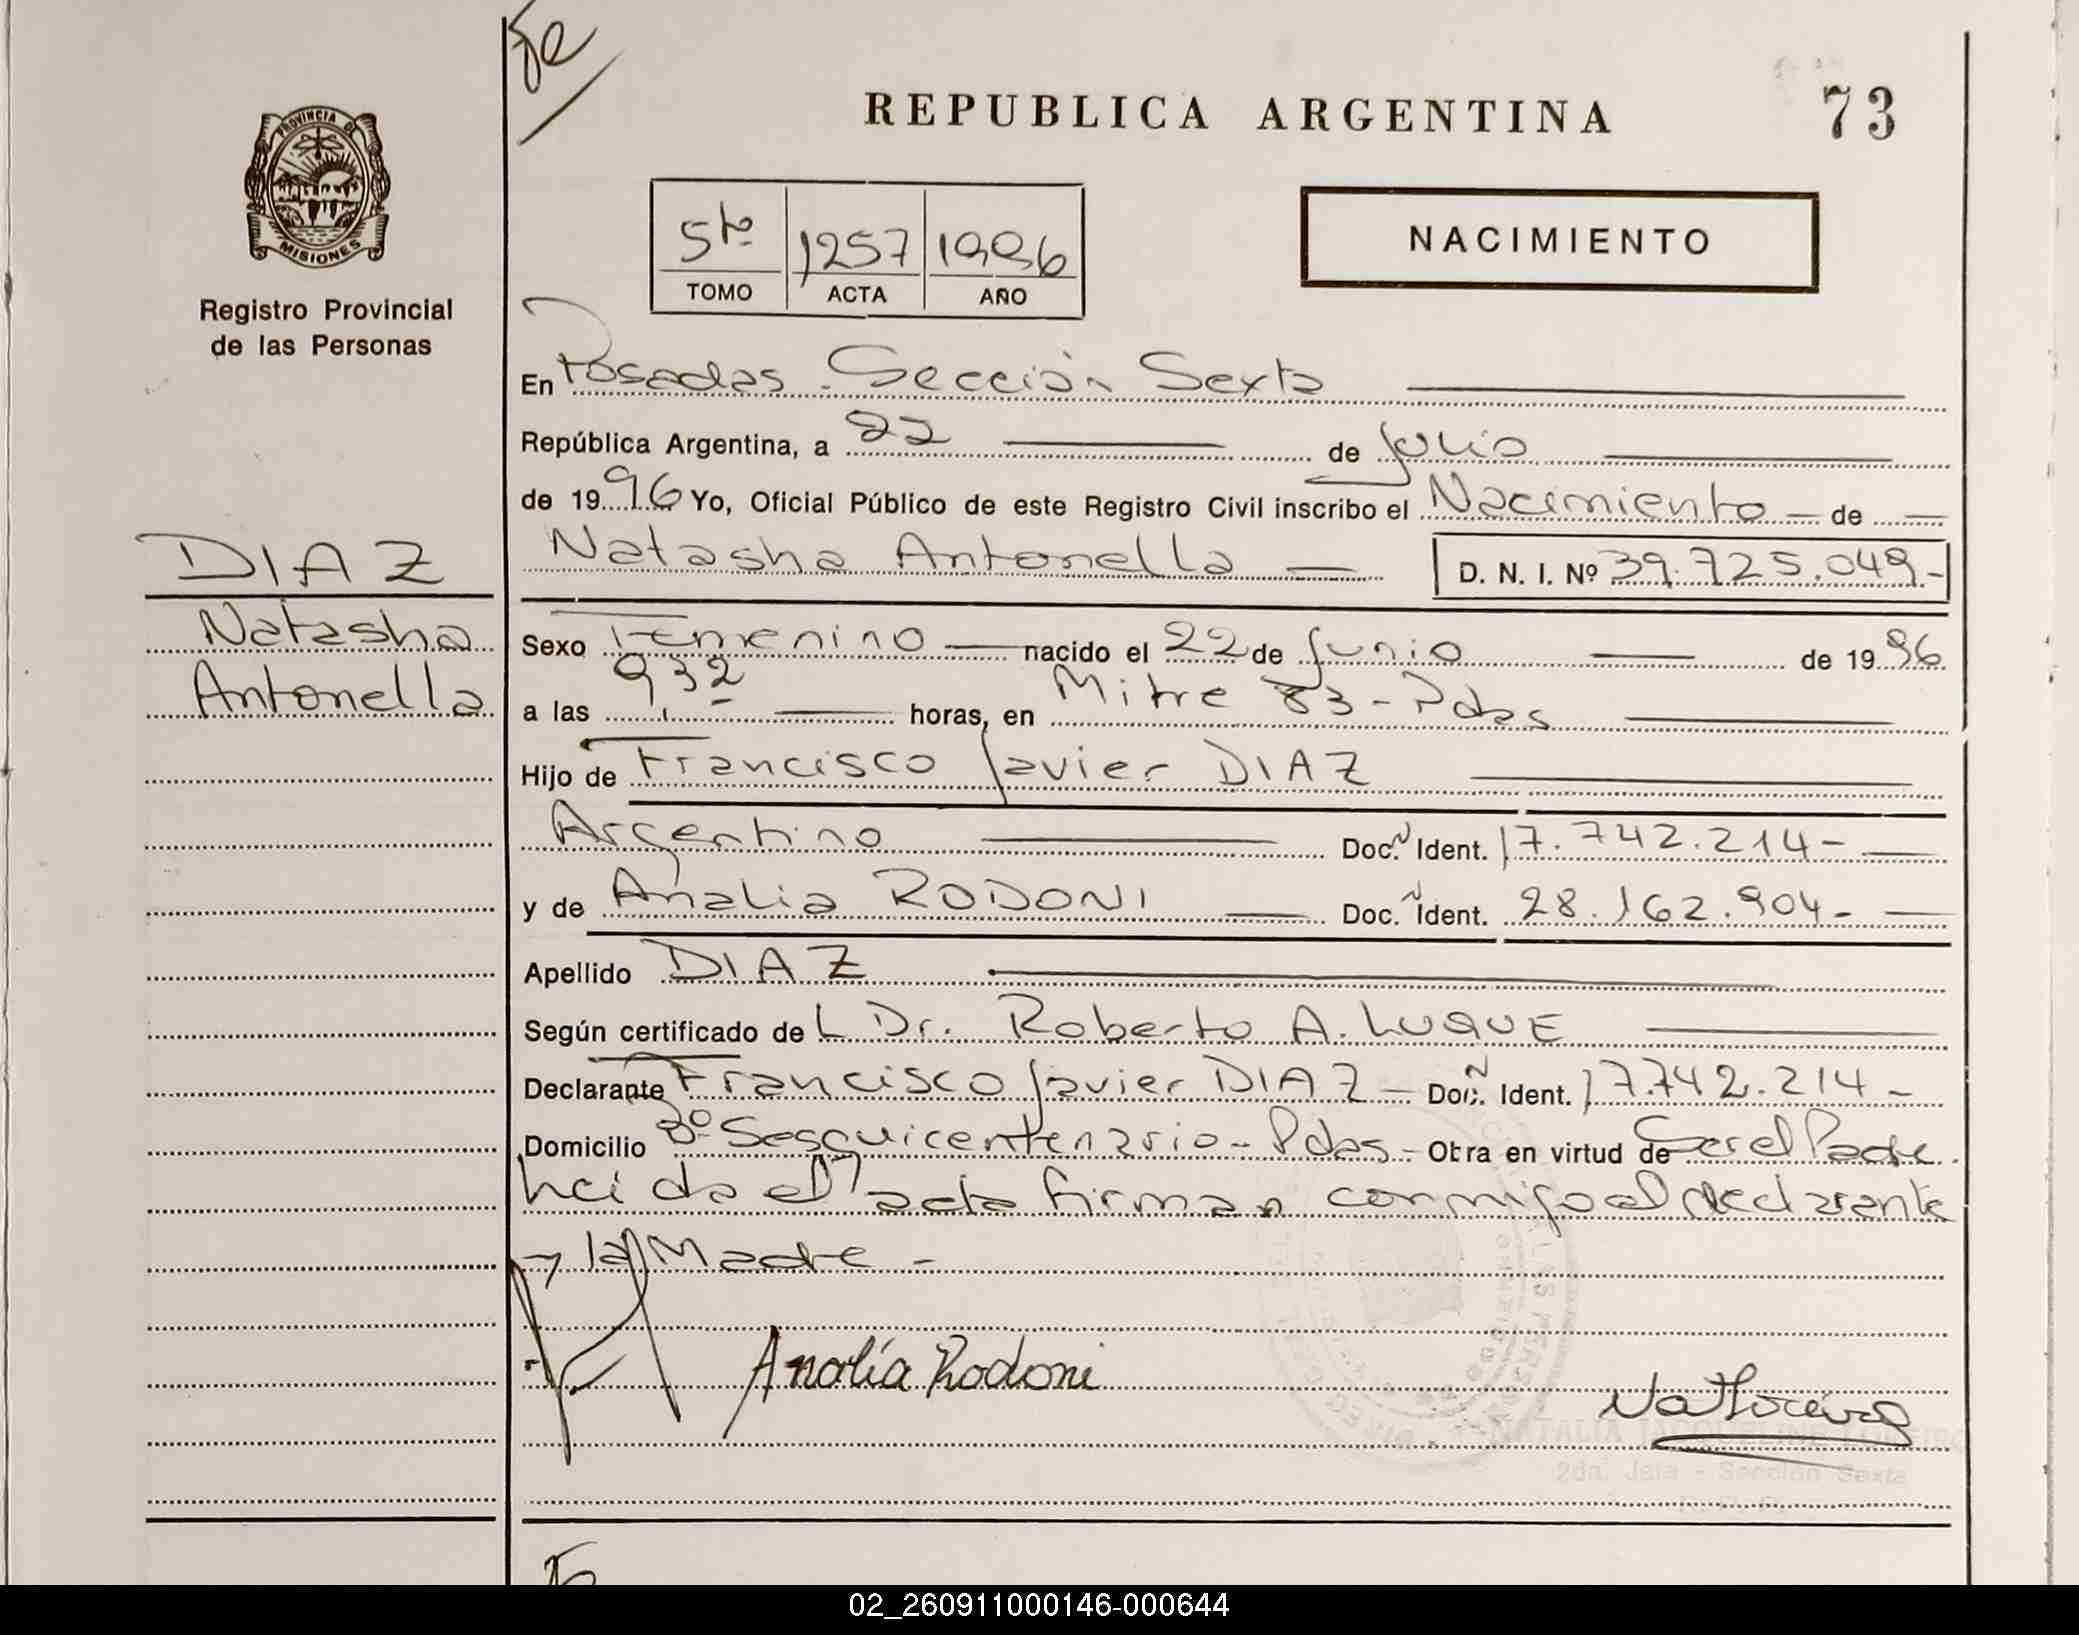 REPUBLICA ARGENTINA
73
PROVINCIA DE
MISIONES
Registro Provincial
de las Personas
5to 1257 1996
TOMO ACTA AÑO
NACIMIENTO
En Posadas - Sección Sexta
República Argentina, a 22 de Julio
de 1996 Yo, Oficial Público de este Registro Civil inscribo el Nacimiento - de
Natasha Antonella - D. N. I. Nº 39.725.049-
DIAZ
Natasha
Antonella
Sexo Femenino nacido el 22 de Junio de 1996
a las 9,32 horas, en Mitre 83 - Pdas
Hijo de Francisco Javier DIAZ
Argentino Doc. Ident. 17.742.214-
y de Analia RODONI Doc. Ident. 28.162.904-
Apellido DIAZ
Según certificado de L Dr. Roberto A. LUQUE
Declarante Francisco Javier DIAZ - Doc. Ident. 17.742.214-
Domicilio Bº Sesquicentenario - Pdas - Obra en virtud de Ser el Padre
leida el acta firman conmigo el declarante
y la Madre -
Analía Rodoni
NATALIA JACQUELINE
2da. Jefa - Sección Sexta
02_260911000146-000644